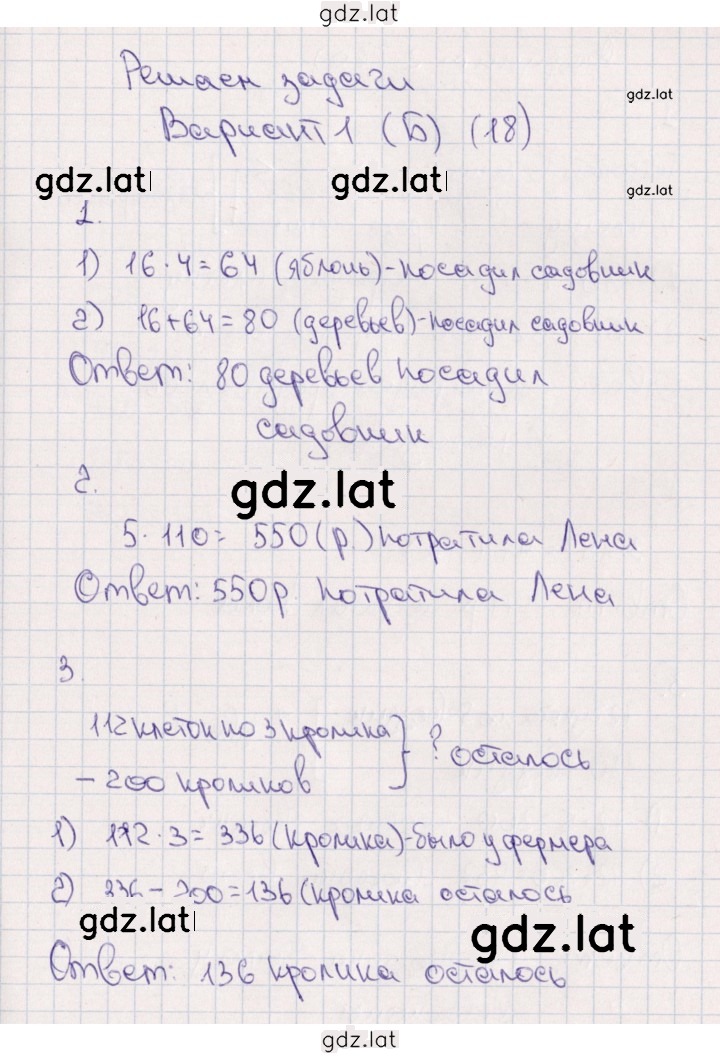 gdz.lat
Решаем задачи
gdz.lat
Вариант 1 (Б) (18)
gdz.lat gdz.lat gdz.lat
1.
1) 16·4=64 (яблонь)-посадил садовник
2) 16+64=80 (деревьев)-посадил садовник
Ответ: 80 деревьев посадил
садовник
2.
gdz.lat
5·110= 550(р.) потратила Лена
Ответ: 550р. потратила Лена
3.
112 клеток по 3 кролика
- 200 кроликов } ? осталось
1) 112·3=336(кролика)-было у фермера
2) 336-200=136(кролика осталось
gdz.lat
gdz.lat
Ответ: 136 кролика осталось
gdz.lat